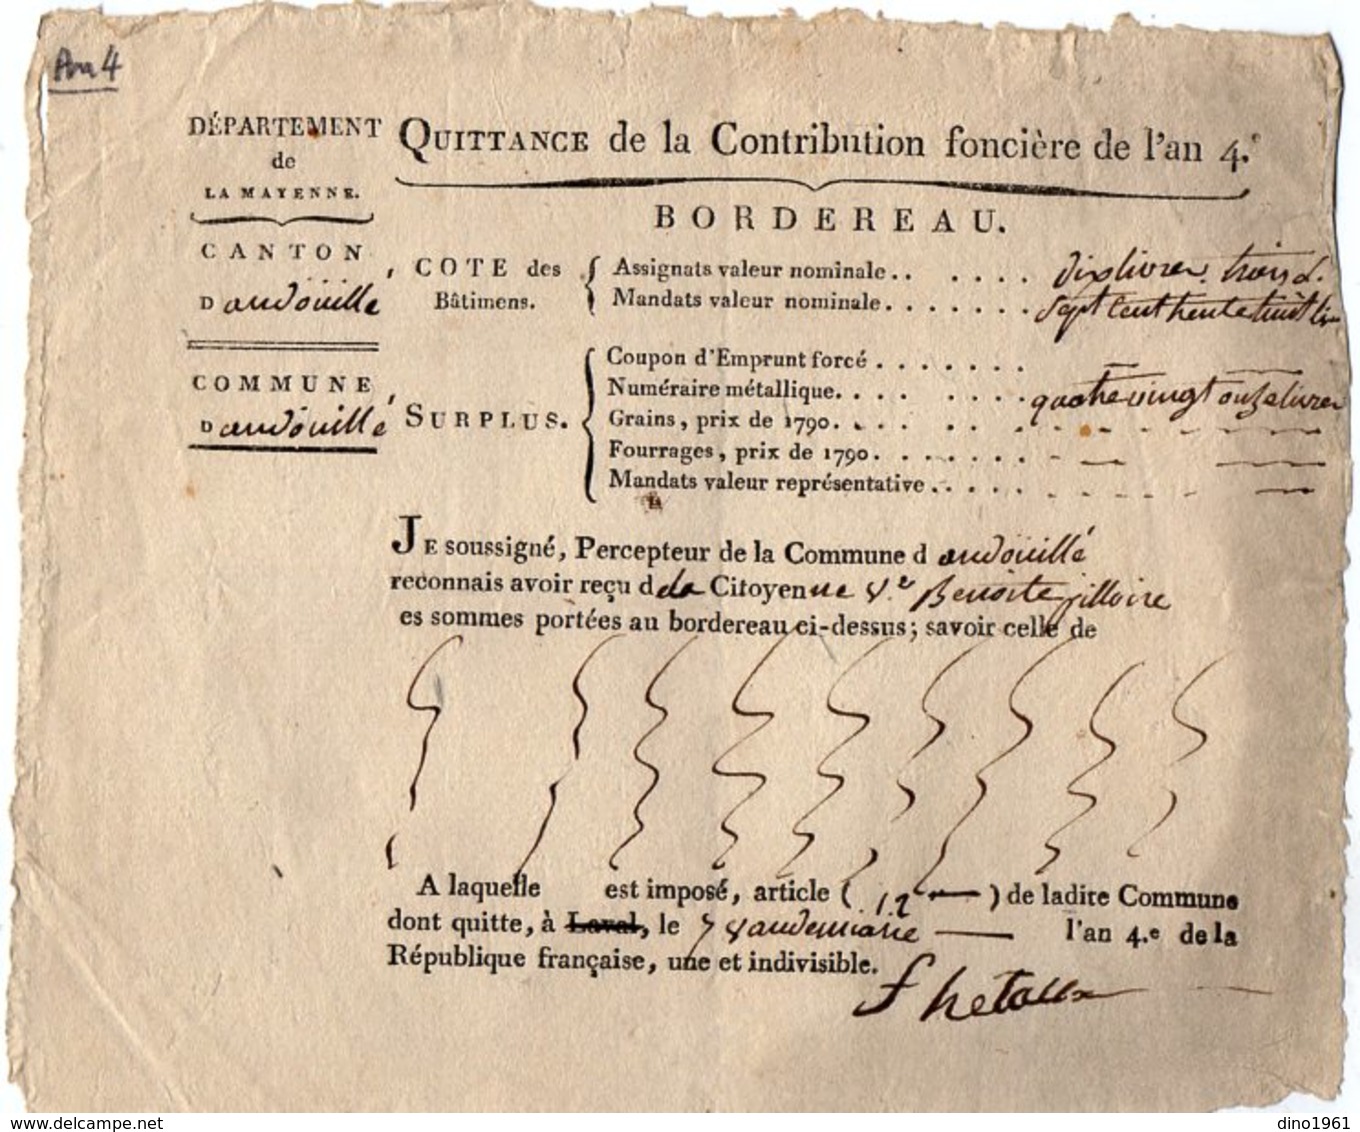 An 4
DÉPARTEMENT
de
LA MAYENNE.
CANTON
D'andoüillé
COMMUNE
D'andoüillé
QUITTANCE de la Contribution foncière de l'an 4.e
BORDEREAU.
COTE des Bâtimens.
Assignats valeur nominale.. .... dix livres trois d.
Mandats valeur nominale....... sept cent trente huit liv
SURPLUS.
Coupon d'Emprunt forcé.......
Numéraire métallique.... .... quatre vingt onze livres
Grains, prix de 1790.... .. ..
Fourrages, prix de 1790.......
Mandats valeur représentative.....
JE soussigné, Percepteur de la Commune d andoüillé
reconnais avoir reçu d de la Citoyenne v.e Benoite
es sommes portées au bordereau ci-dessus; savoir celle de
A laquelle est imposé, article ( 12 — ) de ladite Commune
dont quitte, à Laval, le 7 vandemiaire — l'an 4.e de la
République française, une et indivisible.
www.delcampe.net
dino1961